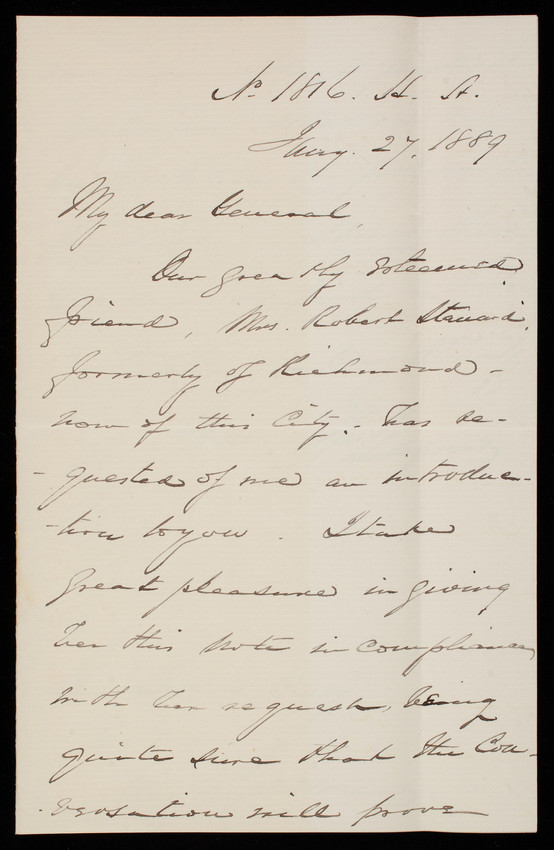 No 1816. H. St.
Jany. 27, 1889
My dear General,
Our greatly esteemed
friend, Mrs. Robert Stanard,
formerly of Richmond -
now of this City. - has re-
- quested of me an introduc-
- tion to you. I take
great pleasure in giving
her this note in compliance
with her request, being
quite sure that the Con-
- versation will prove